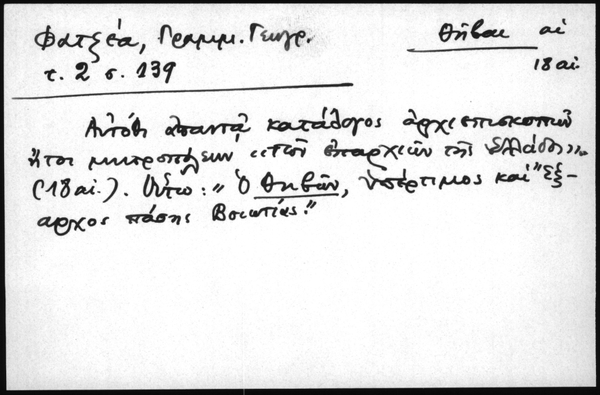 Φατζέα, Γραμμ. Γεωγρ.
τ. 2 σ. 139
Θῆβαι αἱ
18 αἰ.
Αὐτόθι ἀπαντᾷ κατάλογος ἀρχιεπισκοπῶν
ἤτοι μητροπόλεων "τῶν ἐπαρχιῶν τῆς Ἑλλάδος"
(18 αἰ.). Οὕτω: "Ὁ Θηβῶν, ὑπέρτιμος καὶ Ἔξ-
αρχος πάσης Βοιωτίας."